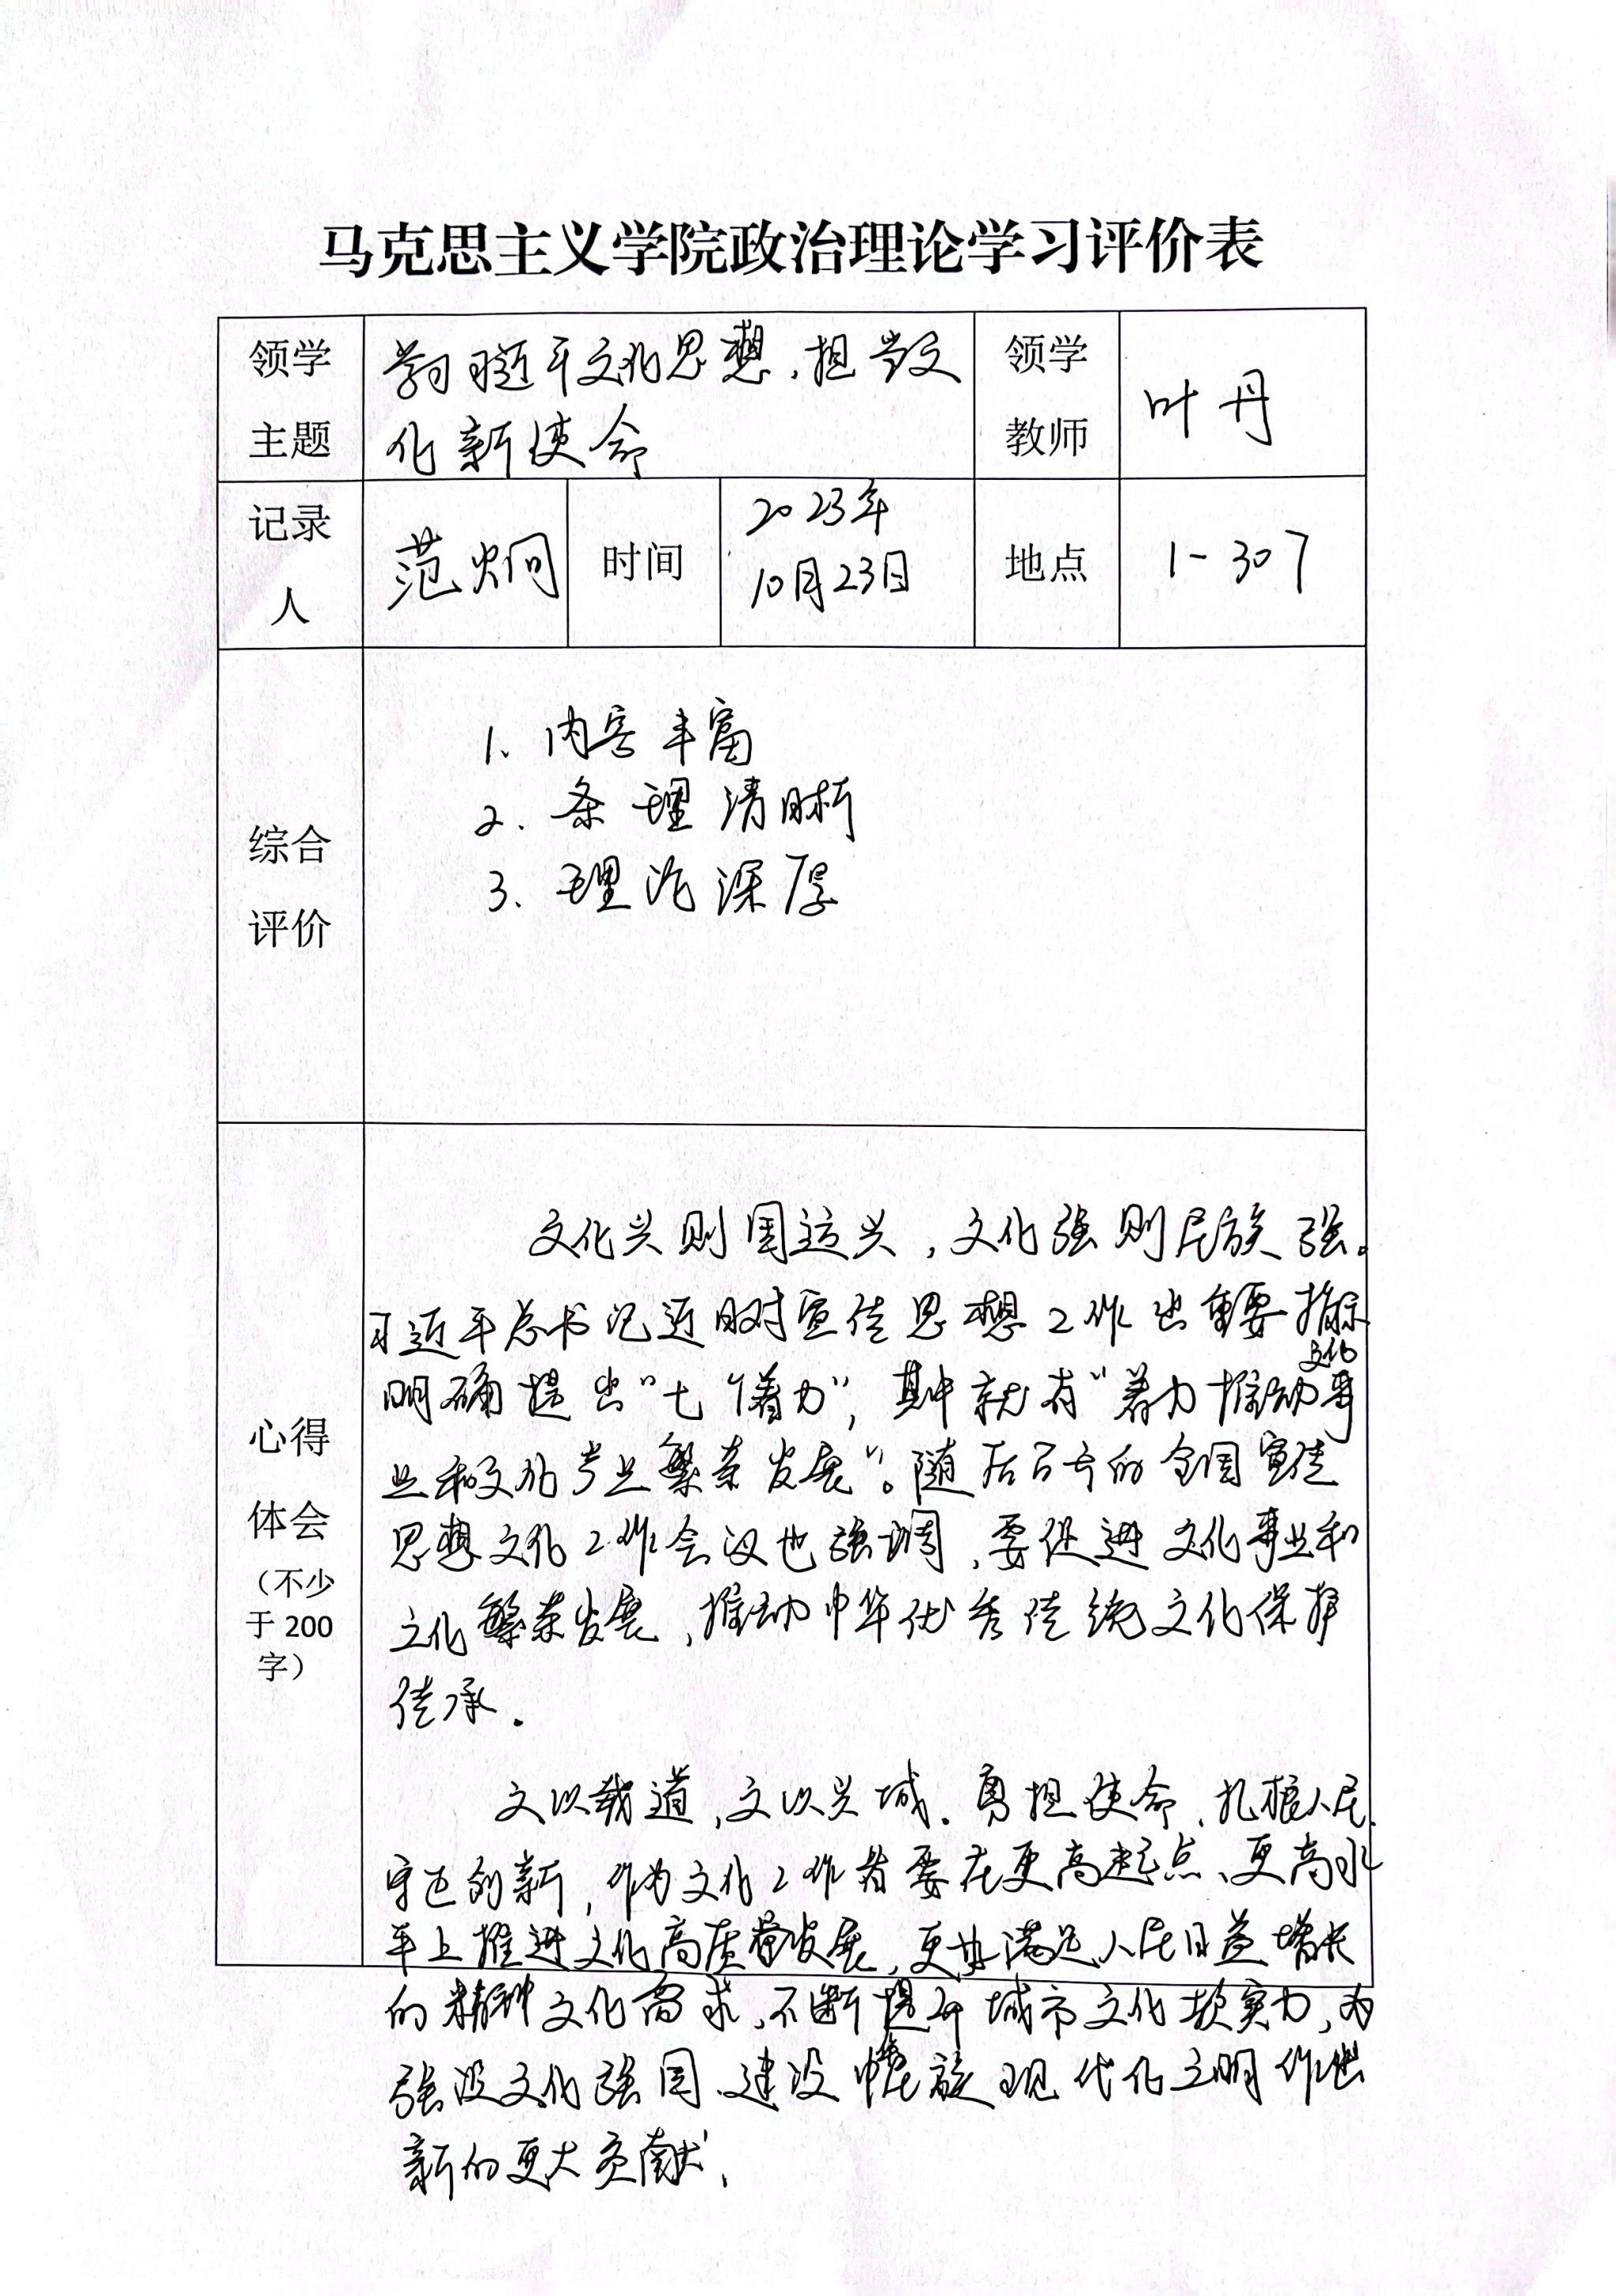 马克思主义学院政治理论学习评价表
领学主题
学习习近平文化思想，担当文
化新使命
领学教师
叶丹
记录人
范炯
时间
2023年
10月23日
地点
1-307
综合评价
1、内容丰富
2、条理清晰
3、理论深厚
心得体会
（不少于200字）
文化兴则国运兴，文化强则民族强。
习近平总书记近日对宣传思想工作出重要指示
明确提出“七个着力”，其中就有“着力推动文化事
业和文化产业繁荣发展”。随后召开的全国宣传
思想文化工作会议也强调，要促进文化事业和
文化繁荣发展，推动中华优秀传统文化保护
传承。
文以载道，文以兴城。勇担使命，扎根人民，
守正创新，作为文化工作者要在更高起点、更高水
平上推进文化高质量发展，更好满足人民日益增长
的精神文化需求，不断提升城市文化软实力，为
强设文化强国、建设中华民族现代化文明作出
新的更大贡献。